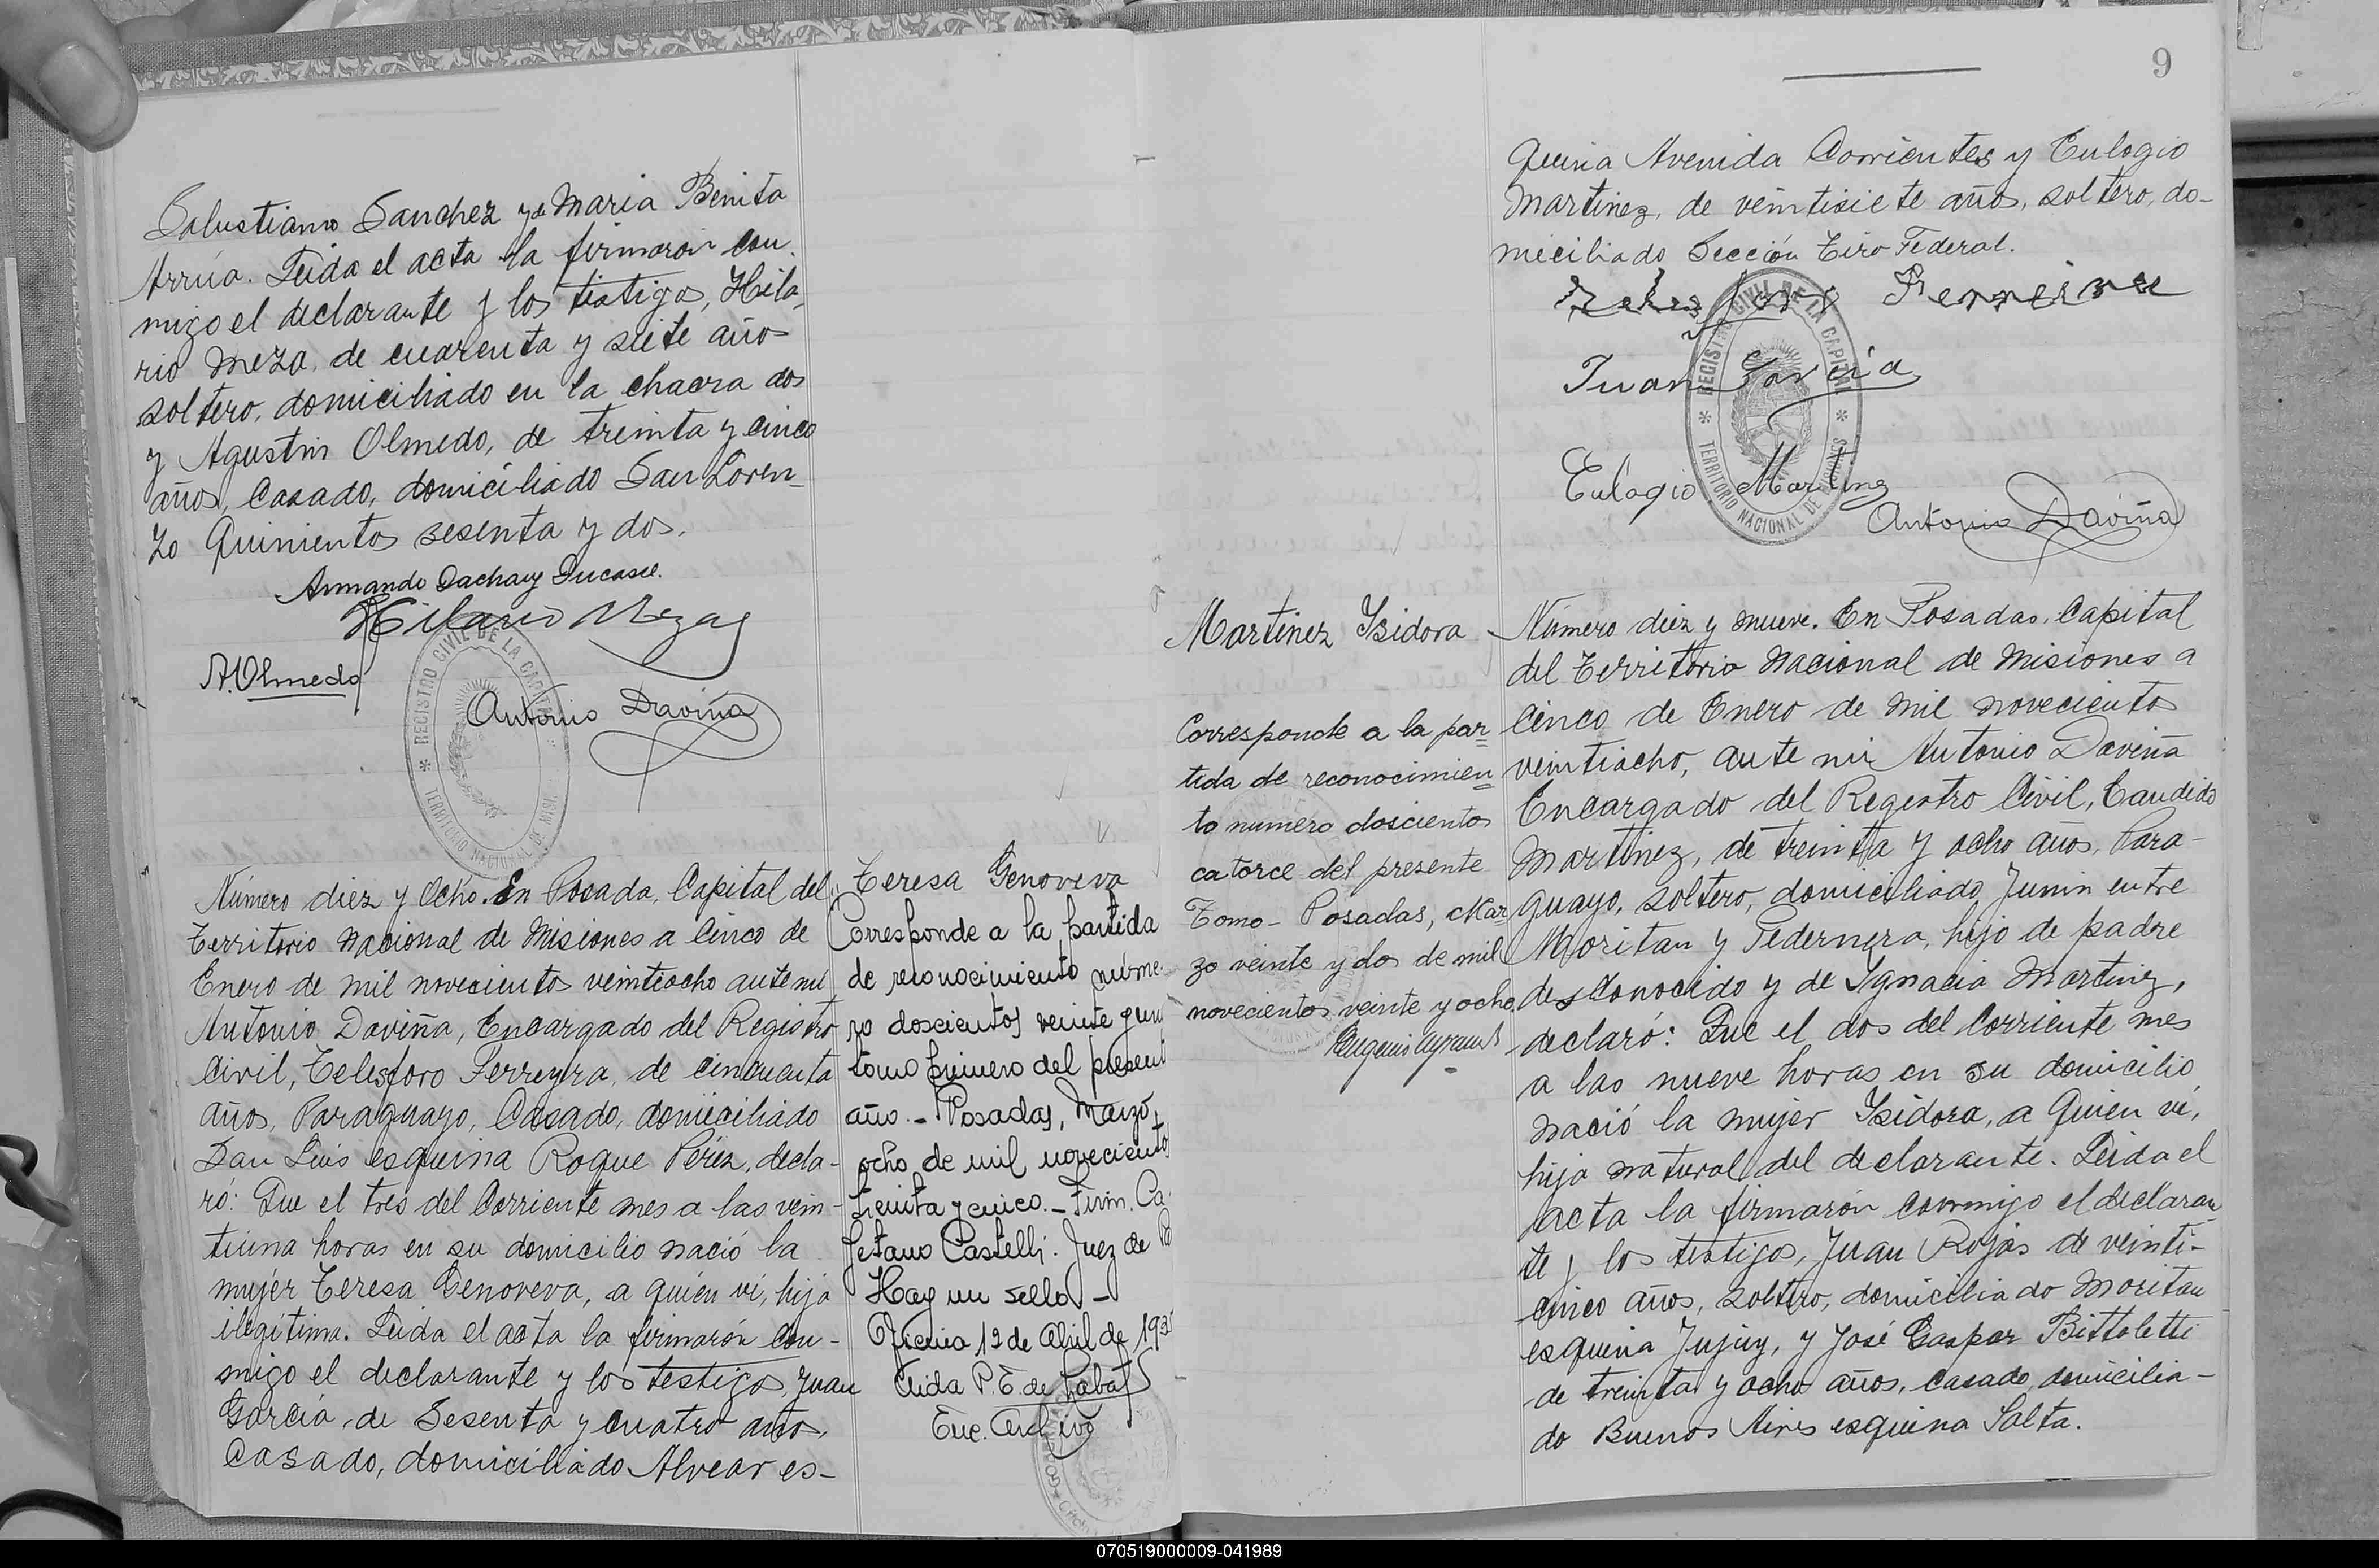 Salustiano Sanchez y de Maria Benita
Arrúa. Leida el acta la firmaron con
migo el declarante y los testigos, Hila
rio Meza, de cuarenta y siete años
soltero, domiciliado en la chacra dos
y Agustin Olmedo, de treinta y cinco
años, casado, domiciliado San Loren-
zo Quinientos sesenta y dos.
Armando Dachary Ducasse.
Hilario Meza
A. Olmedo
Antonio Daviña
REGISTRO CIVIL DE LA CAPITAL
TERRITORIO NACIONAL DE MISI.
Número diez y ocho. En Posada, Capital del
Territorio Nacional de Misiones a Cinco de
Enero de mil novecientos veintiocho ante mi
Antonio Daviña, Encargado del Registro
Civil, Telesforo Ferreyra, de cincuenta
años, Paraguayo, Casado, domiciliado
San Luis esquina Roque Pérez, decla-
ró: Que el tres del Corriente mes a las vein-
tiuna horas en su domicilio nació la
mujer Teresa Genoveva, a quién vi, hija
ilegítima. Leida el acta la firmarón con-
migo el declarante y los testigos, Juan
García, de Sesenta y cuatro años,
Casado, domiciliado Alvear es-
Teresa Genoveva
Corresponde a la partida
de reconocimiento núme-
ro doscientos veinte
tomo primero del present
año. - Posadas, Marzo,
ocho de mil novecientos
treinta y cinco. - Firm. Ca
yetano Castelli. Juez de
Hay un sello -
12 de Abril de 193
Aida P. E. de
Enc. Archivo
9
quina Avenida Corrientes y Eulogio
Martinez, de veintisiete años, soltero, do-
miciliado Sección Tiro Federal.
Juan García
Eulogio Martinez
Antonio Daviña
REGISTRO CIVIL DE LA CAPITAL
TERRITORIO NACIONAL DE MISIONES
Martinez Isidora
Corresponde a la par
tida de reconocimien
to numero doscientos
catorce del presente
Tomo - Posadas, Mar
zo veinte y dos de mil
novecientos veinte y ocho
Número diez y nueve. En Posadas, Capital
del Territorio Nacional de Misiones a
Cinco de Enero de mil novecientos
veintiocho, ante mi Antonio Daviña
Encargado del Registro Civil, Candido
Martinez, de treinta y ocho años, Para-
guayo, soltero, domiciliado Junin entre
Moritan y Pedernera, hijo de padre
desconocido y de Ignacia Martinez,
declaró: Que el dos del Corriente mes
a las nueve horas en su domicilio
nació la mujer Isidora, a Quien vi,
hija natural del declarante. Leida el
acta la firmarón conmigo el declaran
te y los testigos, Juan Rojas de veinti-
cinco años, soltero, domiciliado Moritan
esquina Jujuy, y José Gaspar Bittoletti
de treinta y ocho años, casado, domicilia-
do Buenos Aires esquina Salta.
070519000009-041989